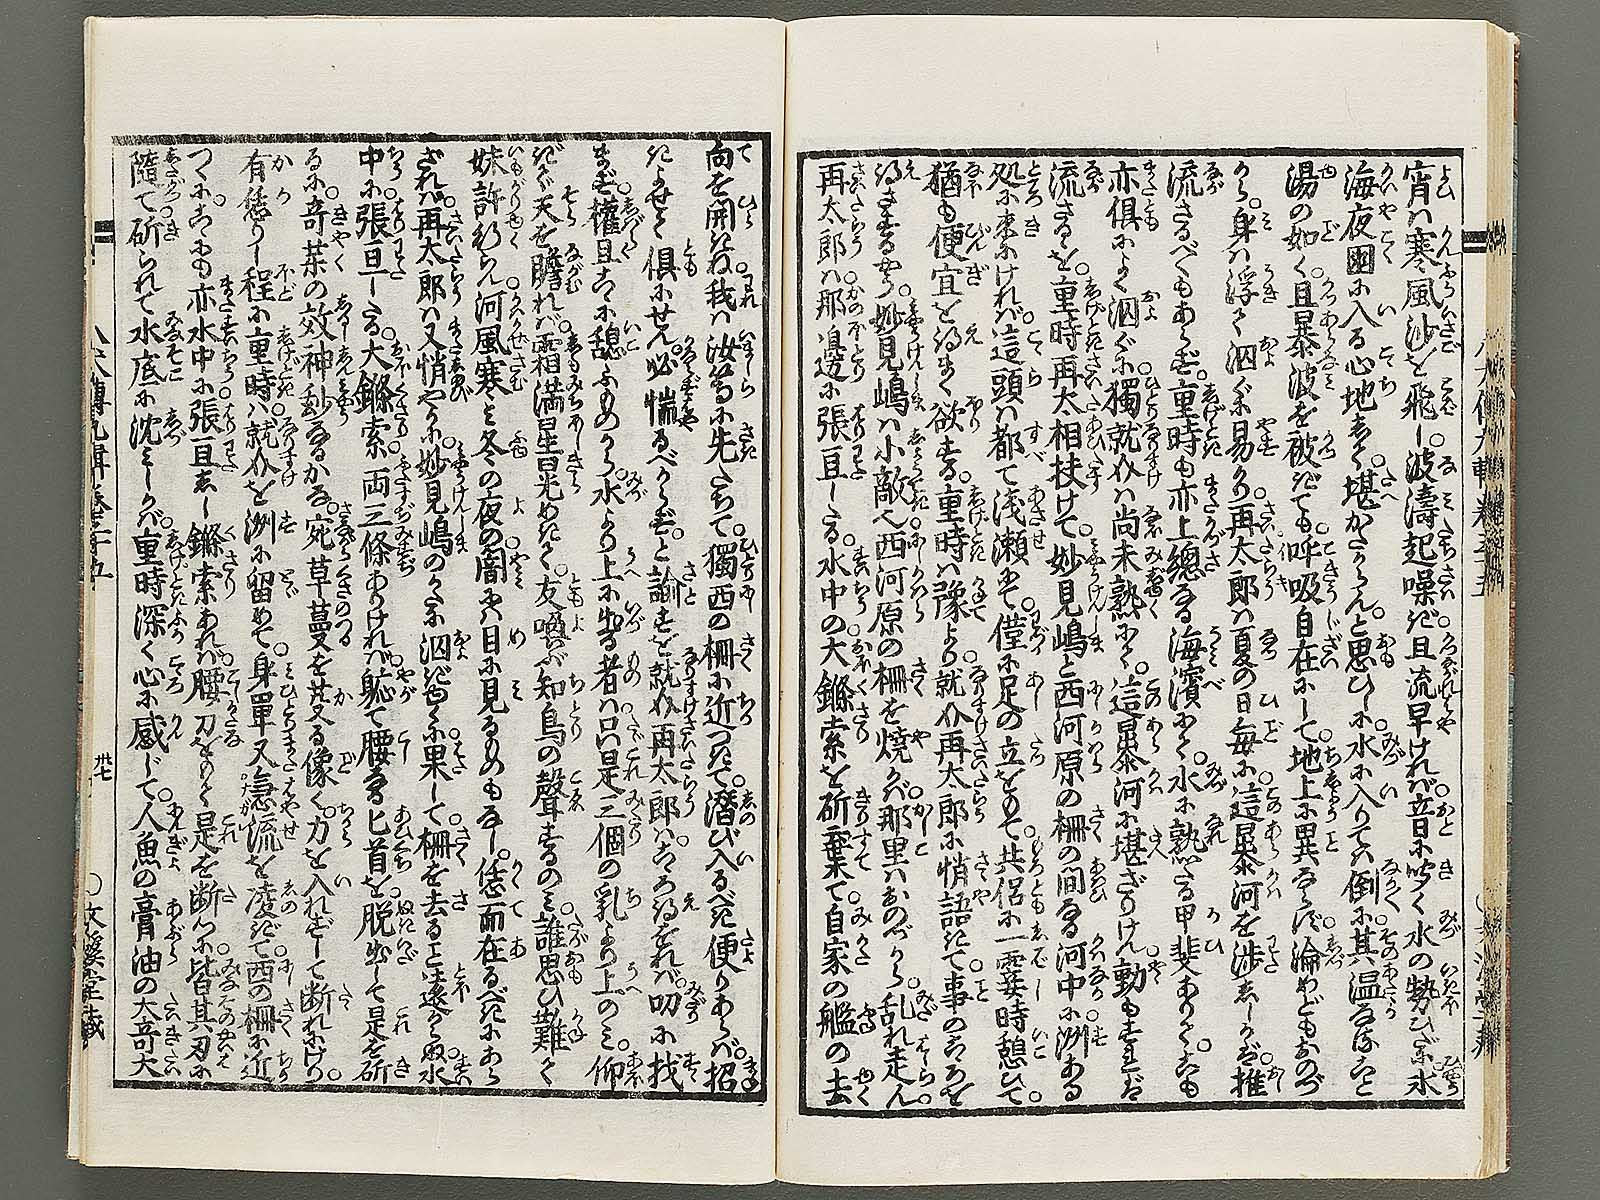 宵は寒風沙を飛し。波濤起噪ぎ且流早ければ立日に咲く水の勢ひだに水
海夜凶に入る心地して。堪かたからんと思ひしに。水に入りては倒に其温なること
湯の如く。且暴波を被ぎても。呼吸自在にして。地上に異ならず。淪めどもおのづ
から。身は浮て泅ぐに易かり。再太郎は夏の日毎に。這暴河を渉しかば推
流さるべくもあらず。重時も亦上總なる海濱にて。水に熟たる甲斐ありて。こも
亦倶によく泅ぐに。獨就介は尚未熟にて。這暴河に堪ざりけん。動もすれば
流さるるを。重時再太相扶けて。妙見嶋と西河原の柵の間なる河中に。洲ある
処に来にければ。這頭は都て浅瀬にて。僅に足の立をもて。共侶に一霎時憩ひて。
猶も便宜を得まく欲す。重時は豫より就介再太郎に悄語ぎて。事のこころを
得さするやう。妙見嶋は小敵也。西河原の柵を焼かば。那里はおのづから。乱れ走らん。
再太郎は那邊に張亘したる。水中の大鏁索を斫棄て。自家の艦の去
向を開きね。我は汝等に先たちて。獨西の柵に近つきて。潜び入るべき便りあらば。招
きよせて倶にせん。必惴るべからず。と諭すを就介再太郎は。こころ得をれば。叨に找
まず。權且ここに憩ふめり。水より上に出る者は。只是三個の乳より上のみ。仰
ぎて天を瞻れば。霜満星光めきて。友喚ぶ知鳥の聲するのみ。誰思ひ難て
妹許行らん。河風寒き冬の夜の闇には目に見るものもなし。恁而在るべきにあら
ざれば。再太郎は又悄やかに。妙見嶋のかたに泅ぎもて。果して柵を去ると遠からぬ。水
中に。張亘したる。大鏁索。両三條ありければ。軈て腰なる匕首を。脱出して是を斫
るに。奇薬の效神妙なるかな。宛草蔓を芟る像く。力を入れずして断れけり。
有恁りし程に重時は。就介を洲に留めて。身單又急流を凌ぎて。西の柵に近
つくに。ここにも亦水中に。張亘しし鏁索あれば。腰刀をもて是を断に。皆其刃に
隨て斫られて水底に沈みしかば。重時深く心に感じて。人魚の膏油の大奇大
八犬傳九輯巻三十五
卅七
○文溪堂藏